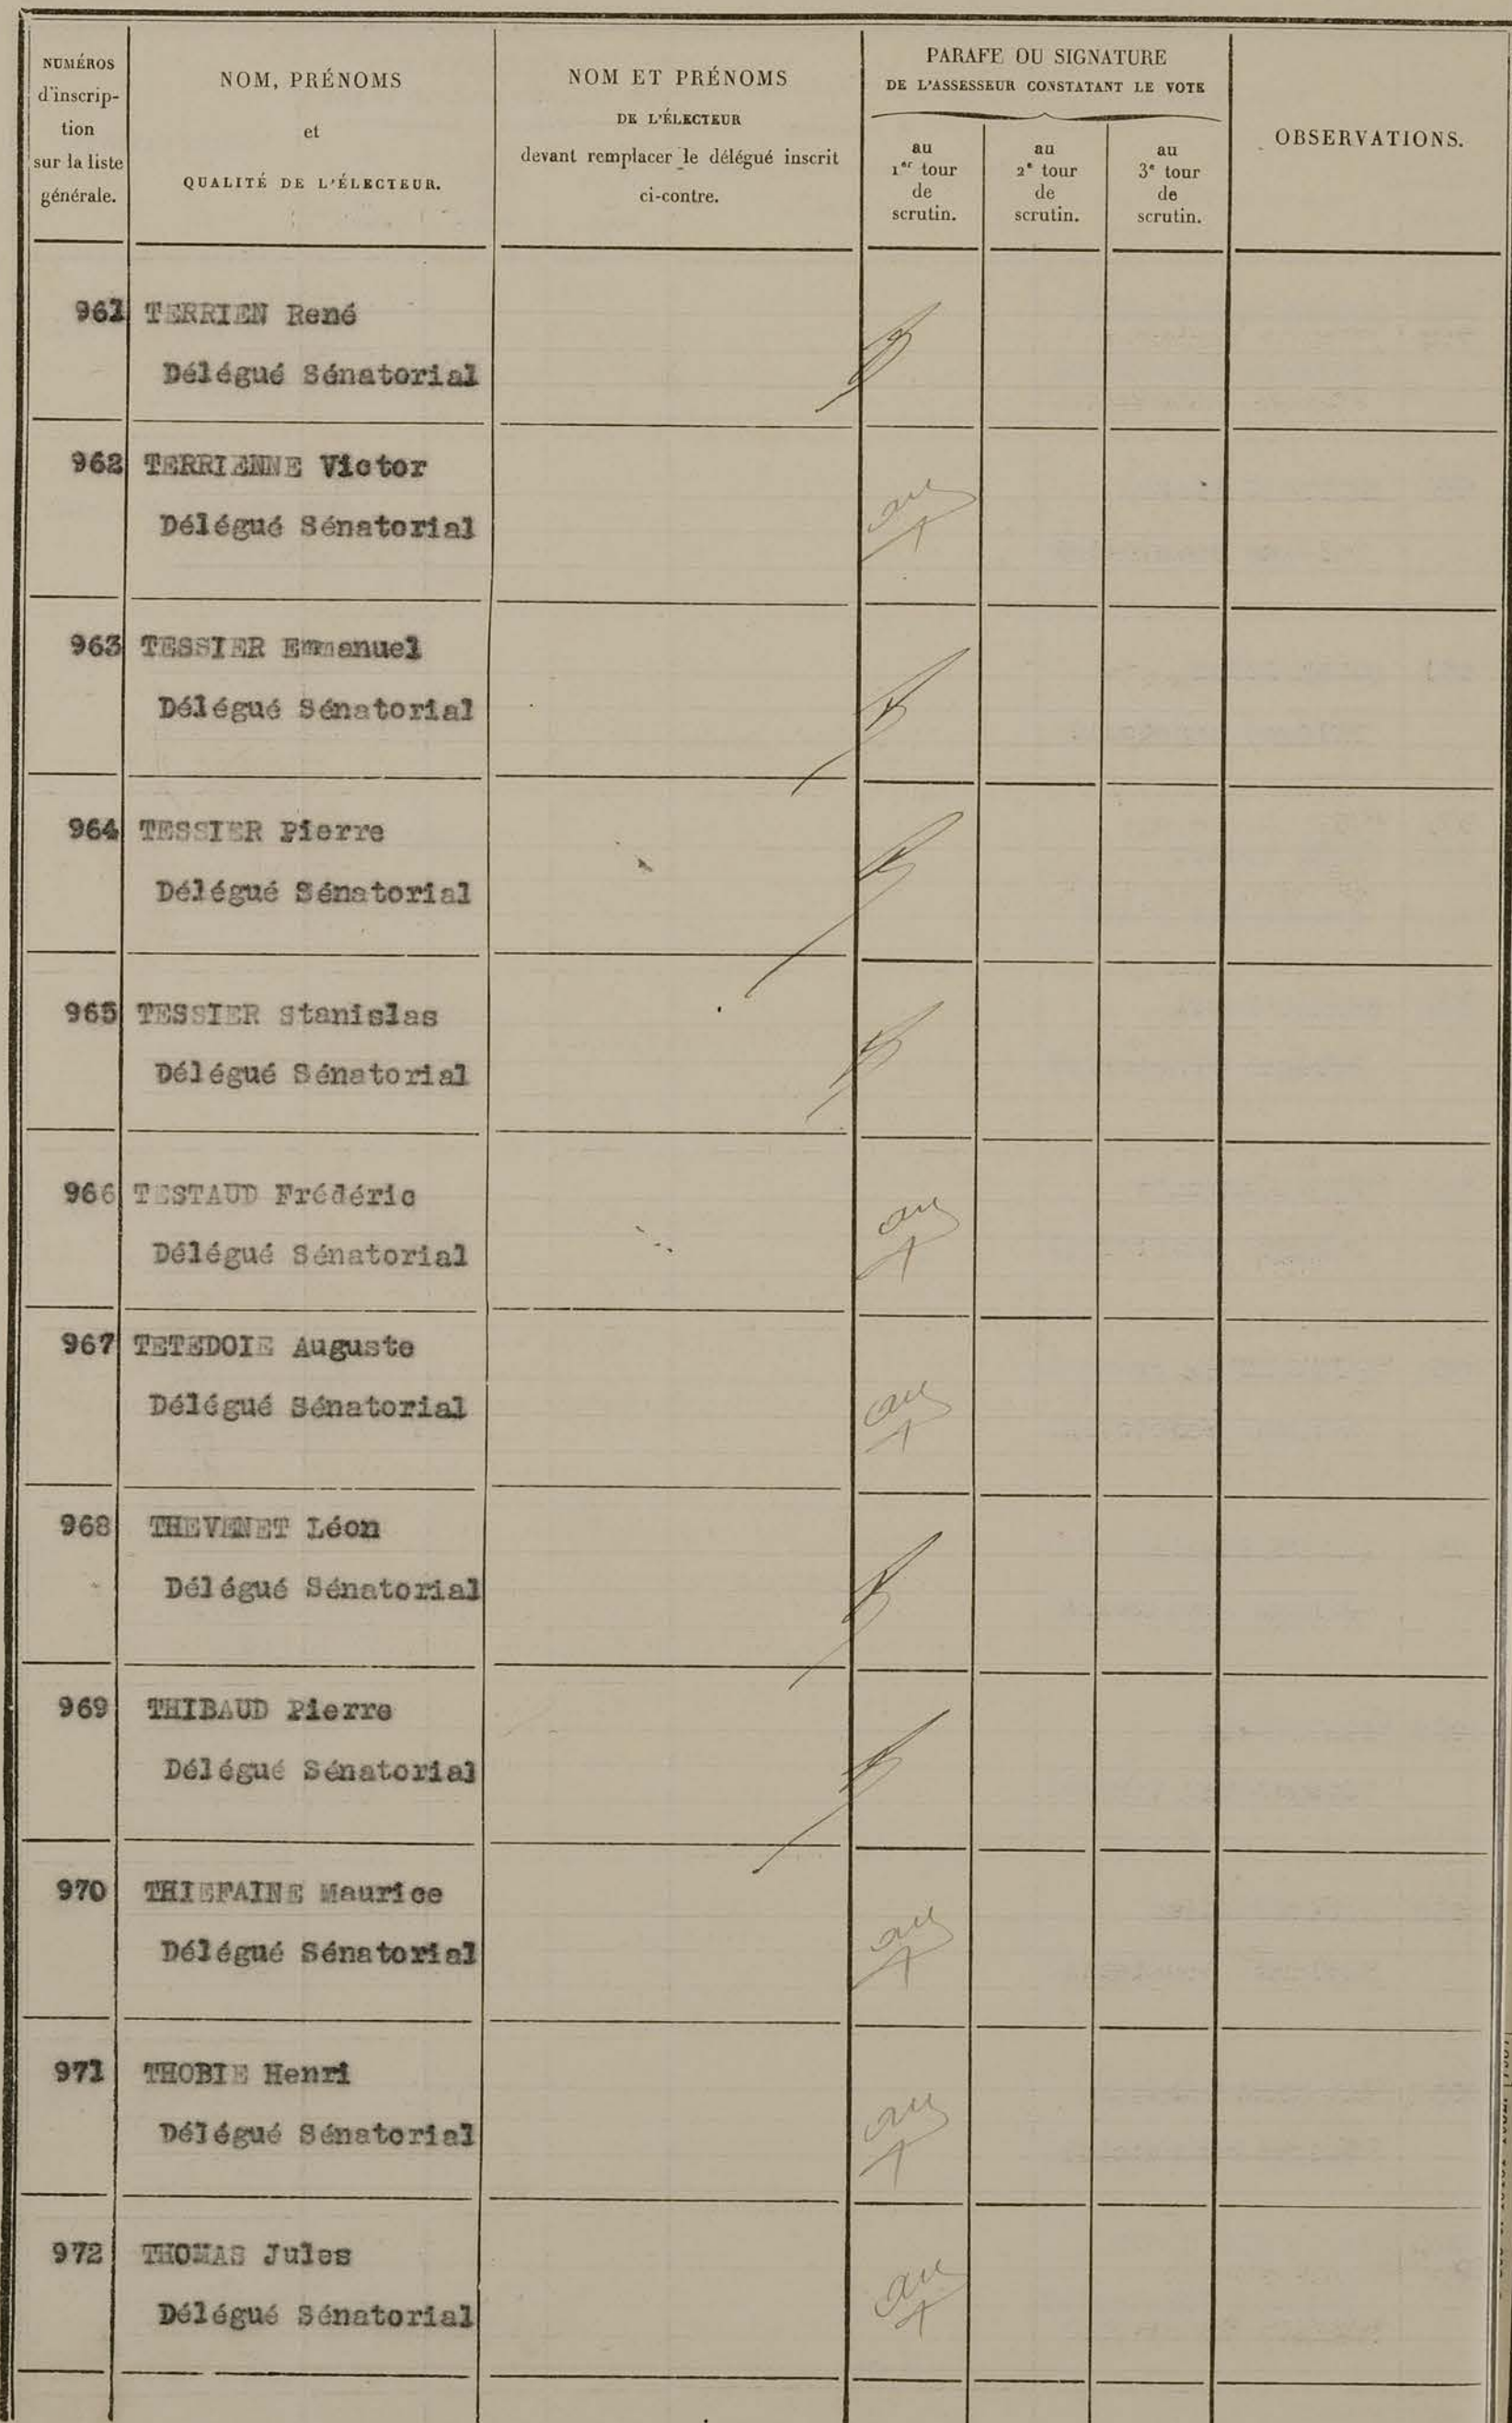 NUMÉROS
d'inscrip-
tion
sur la liste
générale.
NOM, PRÉNOMS
et
QUALITÉ DE L'ÉLECTEUR.
NOM ET PRÉNOMS
DE L'ÉLECTEUR
devant remplacer le délégué inscrit
ci-contre.
PARAFE OU SIGNATURE
DE L'ASSESSEUR CONSTATANT LE VOTE
au
1er tour
de
scrutin.
au
2e tour
de
scrutin.
au
3e tour
de
scrutin.
OBSERVATIONS.
961 TERRIEN René
Délégué Sénatorial
962 TERRIENNE Victor
Délégué Sénatorial
963 TESSIER Emmanuel
Délégué Sénatorial
964 TESSIER Pierre
Délégué Sénatorial
965 TESSIER Stanislas
Délégué Sénatorial
966 TESTAUD Frédéric
Délégué Sénatorial
967 TETEDOIE Auguste
Délégué Sénatorial
968 THEVENET Léon
Délégué Sénatorial
969 THIBAUD Pierre
Délégué Sénatorial
970 THIEFAINE Maurice
Délégué Sénatorial
971 THOBIE Henri
Délégué Sénatorial
972 THOMAS Jules
Délégué Sénatorial